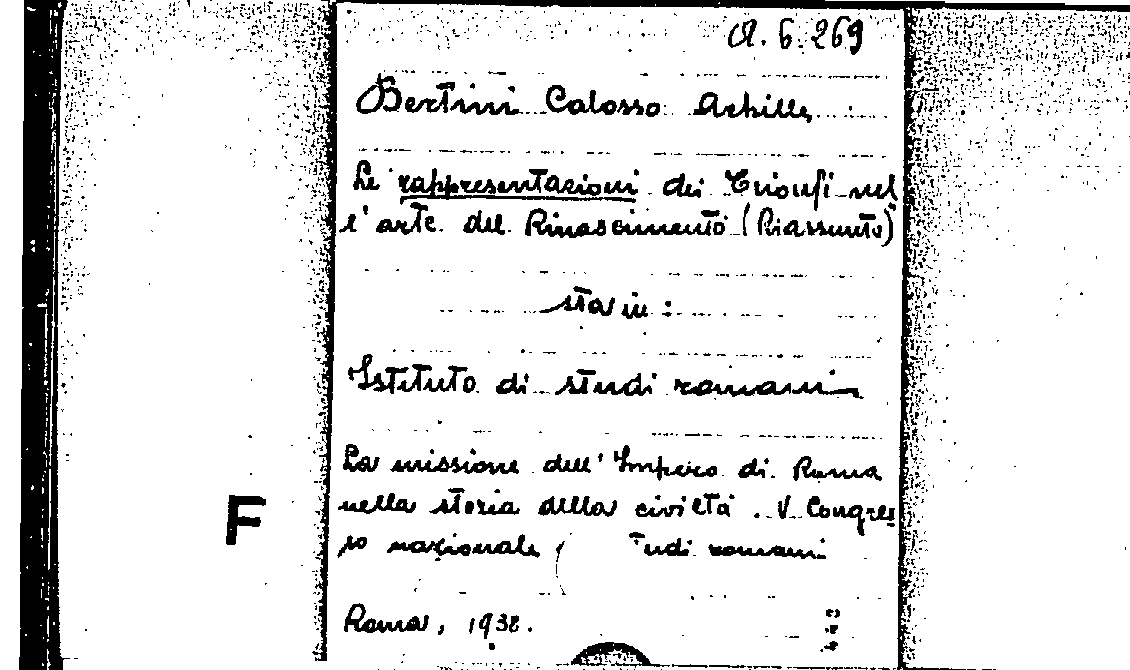 A. 6. 269
Bertini Calosso Achille
Le rappresentazioni dei Trionfi nel
l'arte del Rinascimento (Riassunto)
sta in:
Istituto di studi romani
La missione dell'Impero di Roma
nella storia della civiltà. V Congres
so nazionale tudi romani
F
Roma, 1938.